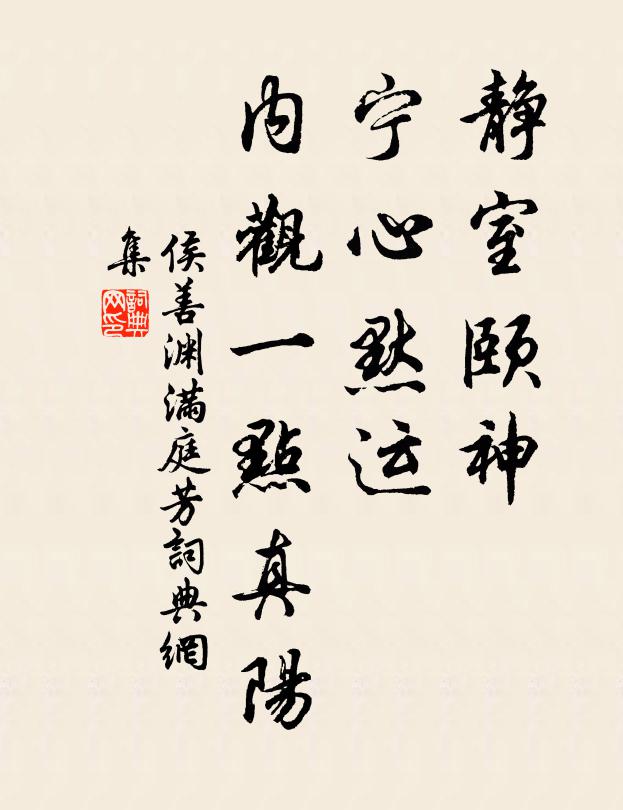 静室頤神
宁心黙运
内觀一點真陽
侯善渊满庭芳詞典網
集
詞典
网印